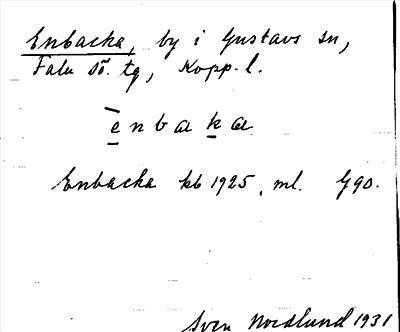 Enbacka, by i Gustavs sn,
Falu sö. tg, Kopp. l.
enbaka
Enbacka kb 1925, ml. G90.
Sven Nordlund 1931